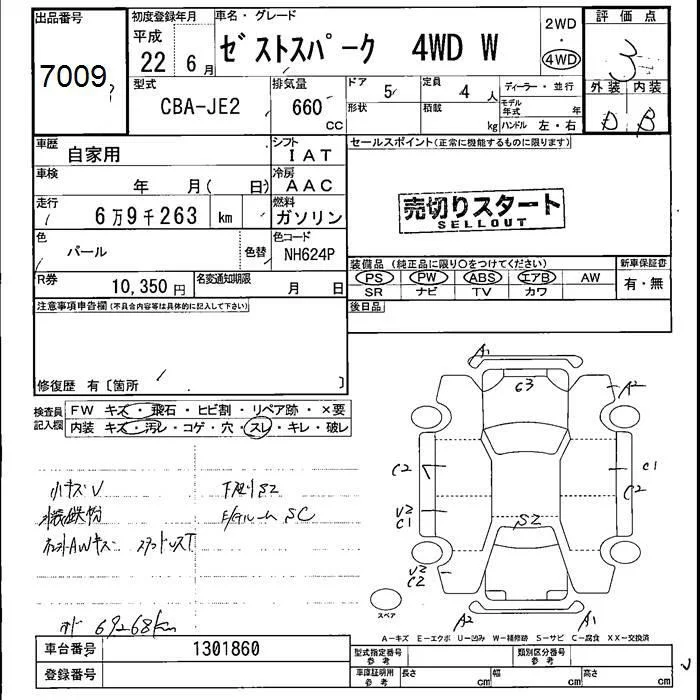 出品番号
7009
初度登録年月
平成
22 6月
車名・グレード
ゼストスパーク 4WD W
2WD
・
4WD
評価点
3
外装 内装
D B
型式
CBA-JE2
排気量
660
cc
ドア
5
形状
定員
4 人
積載
kg
ディーラー・並行
モデル年式 年
ハンドル 左・右
車歴
自家用
シフト
IAT
車検
年 月( 日)
冷房
AAC
走行
6万9千263 km
燃料
ガソリン
色
パール
色替
色コード
NH624P
R券
10,350円
名変通知期限
月 日
セールスポイント(正常に機能するものに限ります)
売切りスタート
SELLOUT
装備品 (純正品に限り○をつけてください)
PS PW ABS エアB AW
SR ナビ TV カワ
新車保証書
有・無
後日品
注意事項申告欄(不具合内容等は具体的に記入して下さい)
修復歴 有〔箇所 〕
検査員記入欄
FW キズ・飛石・ヒビ割・リペア跡・×要
内装 キズ・汚レ・コゲ・穴・スレ・キレ・破レ
小キズV
下廻りS2
E/gルームSC
69268km
A1
G3
A2
C2
C1
C2
V2
C1
S2
V2
C2
A2
A1
スペア
A−キズ E−エクボ U−凹み W−補修跡 S−サビ C−腐食 XX−交換済
車台番号
1301860
登録番号
型式指定番号
参考
類別区分番号
参考
車庫証明用
参考
長さ cm
幅 cm
高さ cm